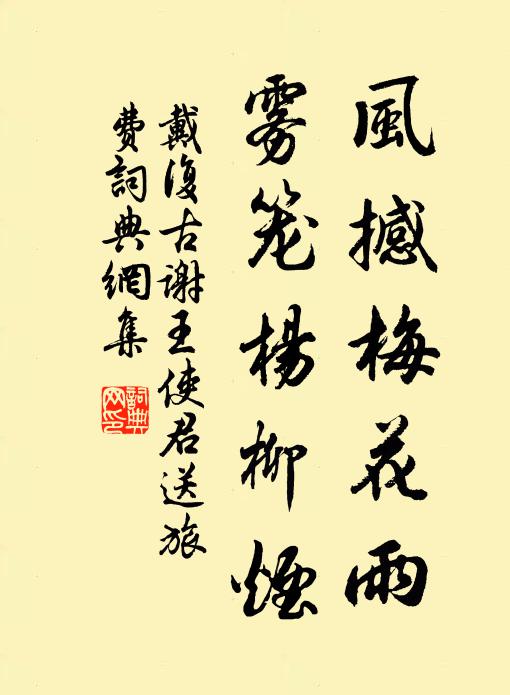 風撼梅花雨
雾笼楊柳煙
戴復古谢王使君送旅
费詞典網集
詞典
网印